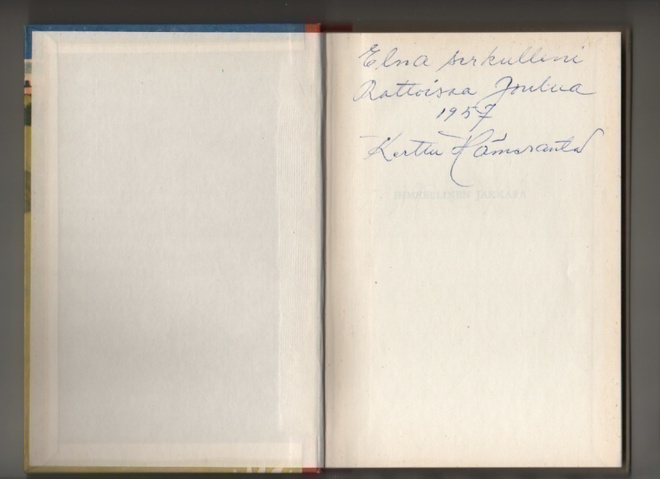 Elna serkulleni
Rattoisaa Joulua
1957
Kerttu Hämeranta